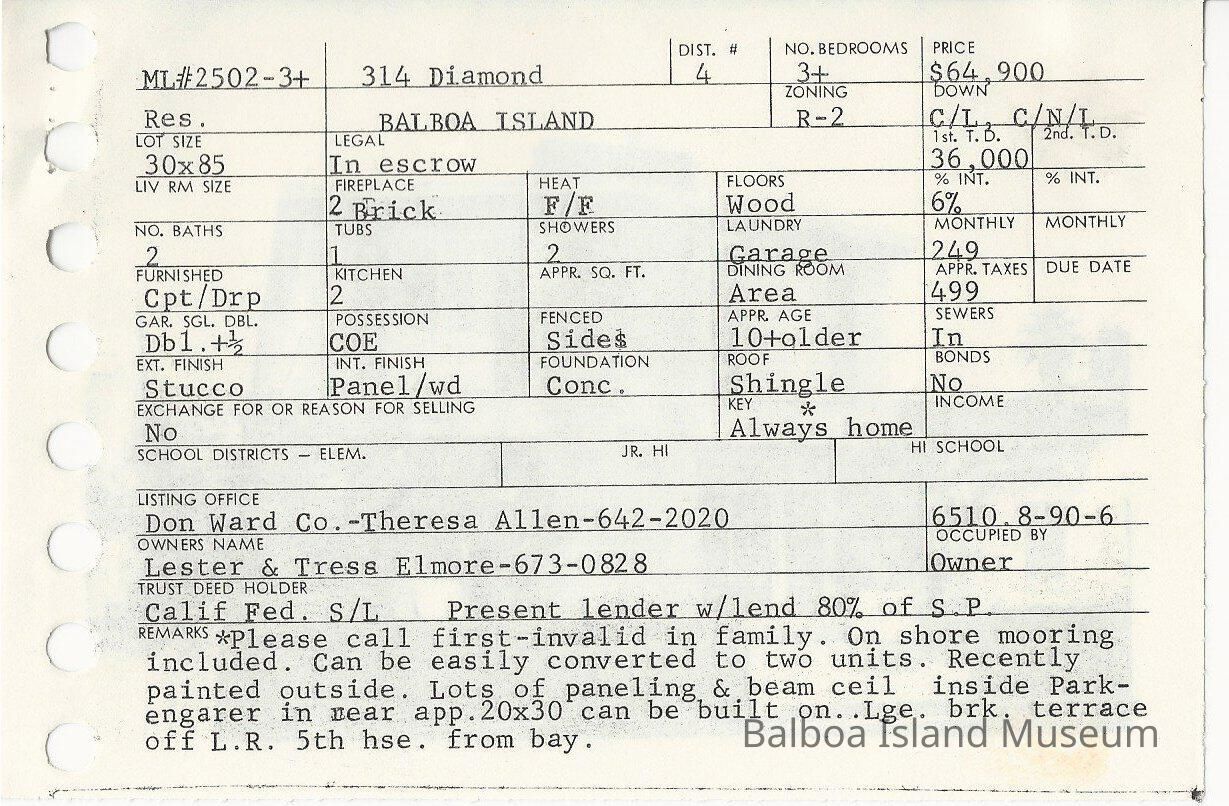 DIST. # NO. BEDROOMS PRICE
ML#2502-3+ 314 Diamond 4 3+ $64,900
ZONING DOWN
Res. BALBOA ISLAND R-2 C/L, C/N/L
LOT SIZE LEGAL 1st. T. D. 2nd. T. D.
30x85 In escrow 36,000
LIV RM SIZE FIREPLACE HEAT FLOORS % INT. % INT.
2 Brick F/F Wood 6%
NO. BATHS TUBS SHOWERS LAUNDRY MONTHLY MONTHLY
2 1 2 Garage 249
FURNISHED KITCHEN APPR. SQ. FT. DINING ROOM APPR. TAXES DUE DATE
Cpt/Drp 2 Area 499
GAR. SGL. DBL. POSSESSION FENCED APPR. AGE SEWERS
Dbl.+½ COE Sides 10+older In
EXT. FINISH INT. FINISH FOUNDATION ROOF BONDS
Stucco Panel/wd Conc. Shingle No
EXCHANGE FOR OR REASON FOR SELLING KEY * INCOME
No Always home
SCHOOL DISTRICTS – ELEM. JR. HI HI SCHOOL
LISTING OFFICE
Don Ward Co.-Theresa Allen-642-2020 6510 8-90-6
OWNERS NAME OCCUPIED BY
Lester & Tress Elmore-673-0828 Owner
TRUST DEED HOLDER
Calif Fed. S/L Present lender w/lend 80% of S.P.
REMARKS *Please call first-invalid in family. On shore mooring
included. Can be easily converted to two units. Recently
painted outside. Lots of paneling & beam ceil inside Park-
engarer in rear app.20x30 can be built on..Lge. brk. terrace
off L.R. 5th hse. from bay.
Balboa Island Museum